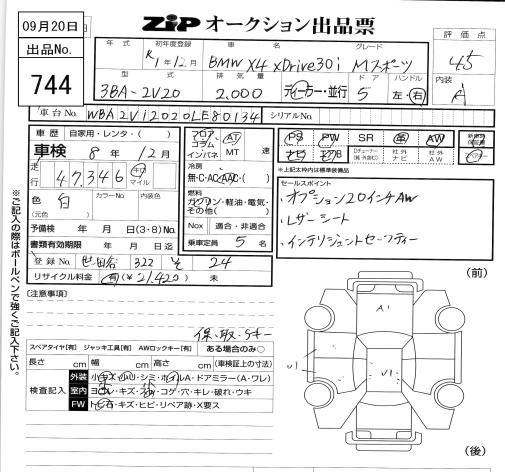 09月20日
出品No.
744
ZIP オークション出品票
年式 初年度登録 車名 グレード
R1年12月 BMW X4 xDrive30i Mスポーツ
評価点
4.5
内装
A
型式 排気量 ドア ハンドル
3BA-2V20 2,000 ディーラー・並行 5 左・右
車台No WBA2V12020LE80134 シリアルNo.
車歴 自家用・レンタ・( )
車検 8年12月
走行 47,346 km マイル
色 白 カラーNo 内装色
(元色 )
予備検 年 月 日(3・8)No.
書類有効期限 年 月 日迄
登録No 世田谷 322 そ 24
リサイクル料金 有(¥21,420) 未
フロア コラム インパネ AT MT 速
冷房 無・C・AC・AAC・( )
燃料 ガソリン・軽油・電気・その他( )
Nox 適合・非適合
乗車定員 5 名
PS PW SR 革 AW
ナビ TV B Dチューナー(純・外含む) 社外ナビ 社外AW
新車時保証書
↑上記太枠内は標準装備品
セールスポイント
・オプション20インチAW
・レザーシート
・インテリジェントセーフティー
(注意事項)
保、取、Sキー
スペアタイヤ[有] ジャッキ工具[有] AWロックキー[有] ある場合のみ○
長さ cm 幅 cm 高さ cm (車検証上の寸法)
検査記入
外装 小キズ・小凹・シミ・ホイルA・ドアミラー(A・ワレ)
室内 ヨゴレ・キズ・スレ・コゲ・穴・キレ・破れ・ウキ
FW トビ石・キズ・ヒビ・リペア跡・X要ス
(前)
A1
U1
U1
(後)
※ご記入の際はボールペンで強くご記入下さい。